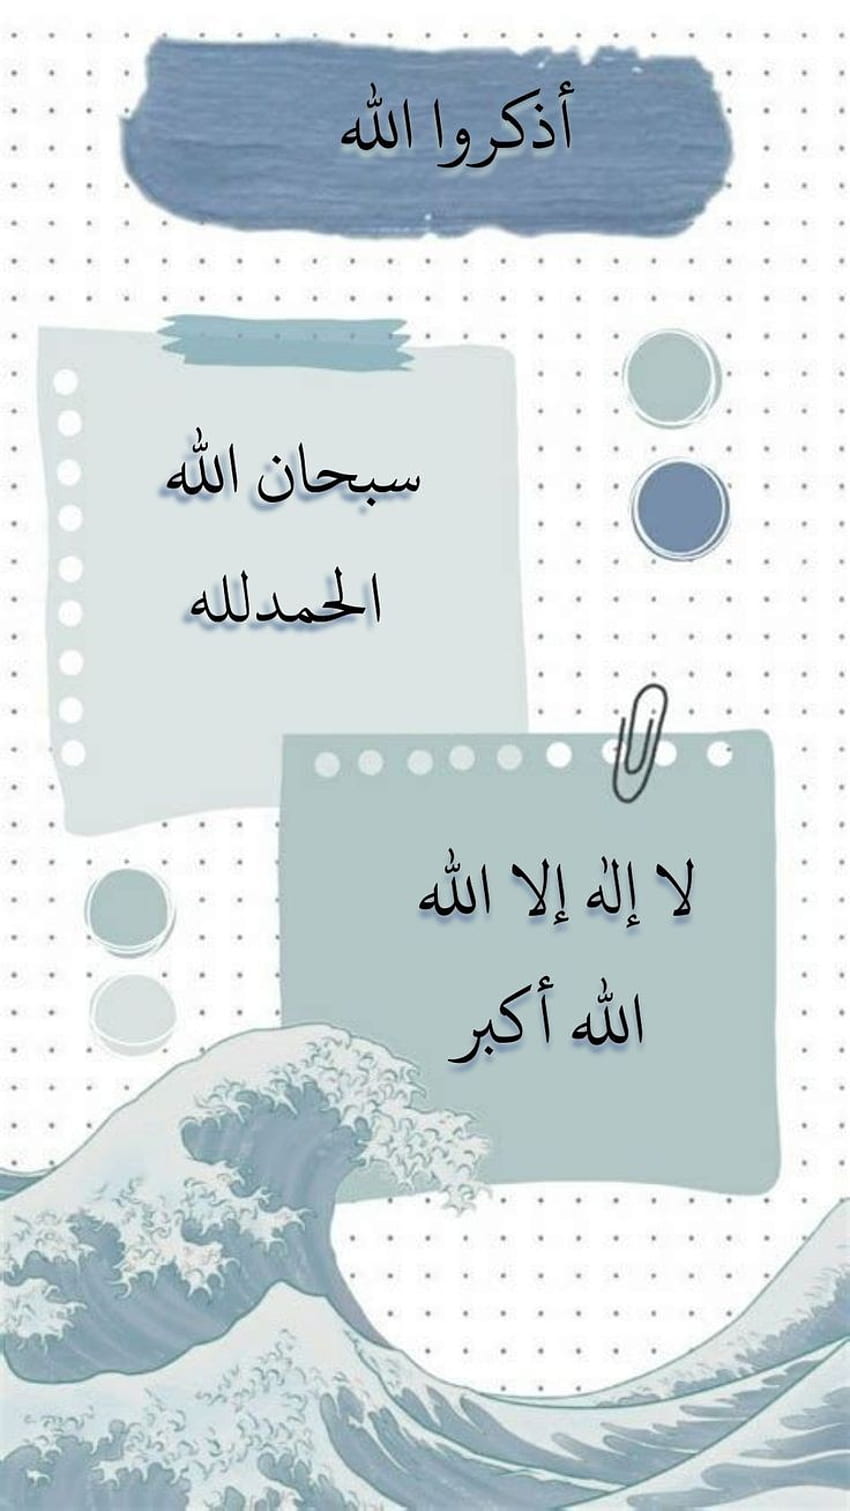 أذكروا الله
سبحان الله
الحمدلله
لا إله إلا الله
الله أكبر